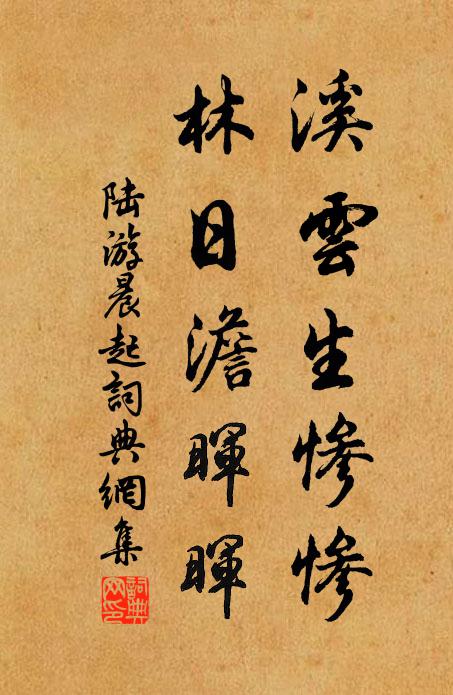 溪雲生慘慘
林日澹暉暉
陆游晨起詞典網集
詞典網印